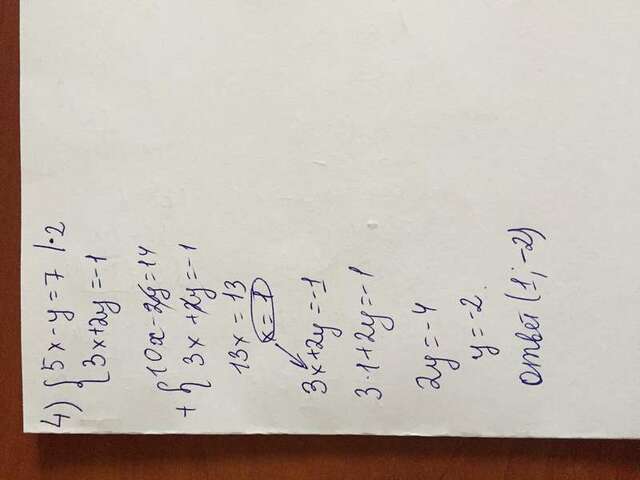 4) { 5x-y=7 |·2
3x+2y=-1
+ { 10x-2y=14
3x+2y=-1
13x=13
x=1
3x+2y=-1
3·1+2y=-1
2y=-4
y=-2.
ответ (1; -2)